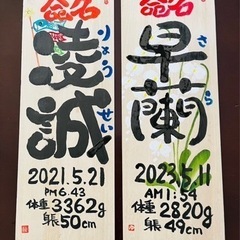 命名
凌誠
りょうせい
2021.5.21
PM6.43
体重3362g
身長50cm
命名
早蘭
さら
2023.5.11
AM1:54
体重2820g
身長49cm